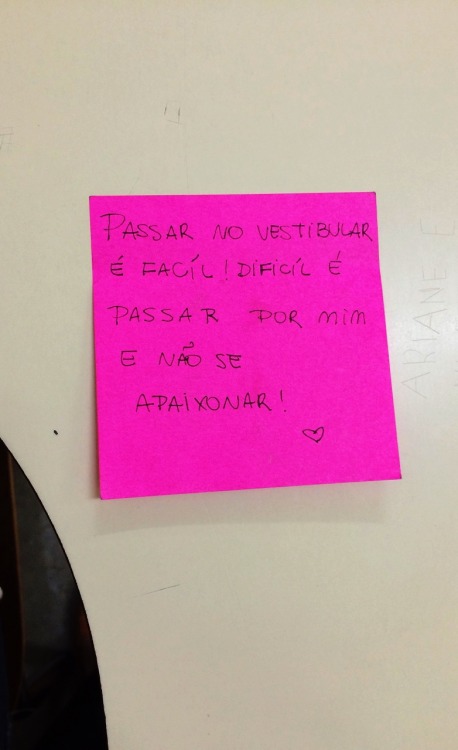 PASSAR NO VESTIBULAR
É FACÍL! DIFICÍL É
PASSAR POR MIM
E NÃO SE
APAIXONAR!
ARIANE E